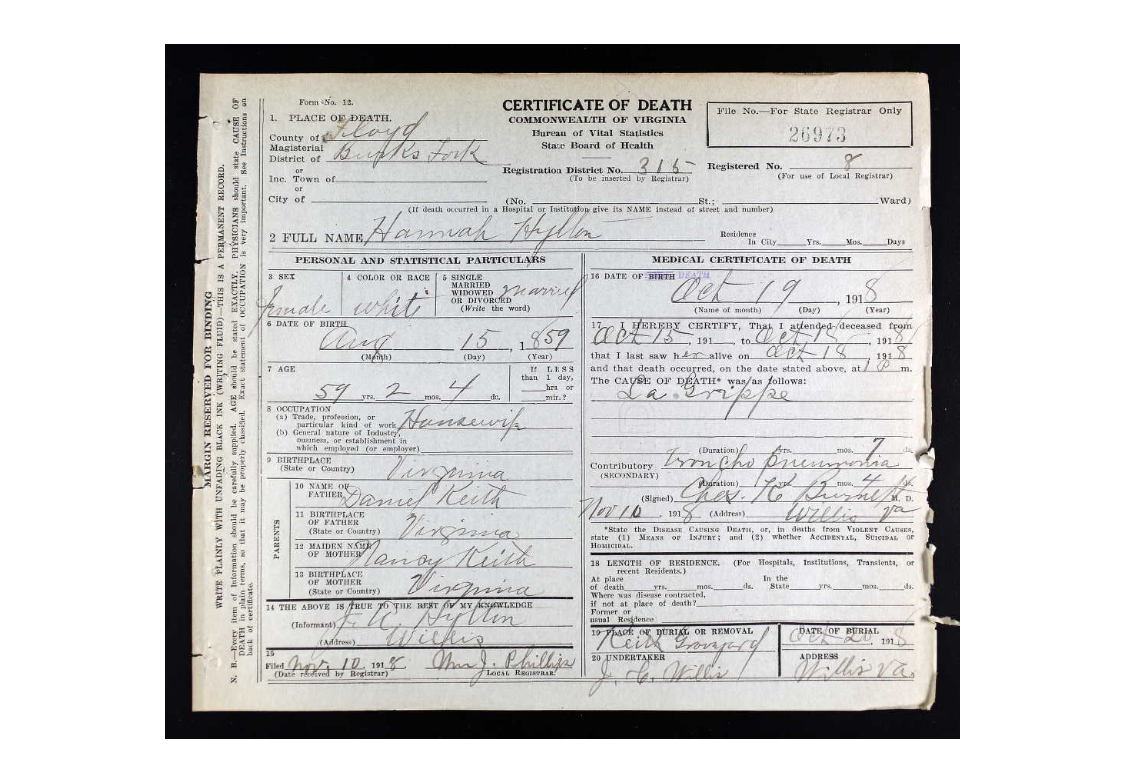 Form No. 12.
CERTIFICATE OF DEATH
COMMONWEALTH OF VIRGINIA
Bureau of Vital Statistics
State Board of Health
File No.—For State Registrar Only
26973
1. PLACE OF DEATH.
County of Floyd
Magisterial
District of Burks Fork
or
Inc. Town of
or
City of
Registration District No. 315
(To be inserted by Registrar)
Registered No. 8
(For use of Local Registrar)
(No. St.; Ward)
(If death occurred in a Hospital or Institution give its NAME instead of street and number)
2 FULL NAME Hannah Hylton
Residence
In City Yrs. Mos. Days
PERSONAL AND STATISTICAL PARTICULARS
3 SEX
female
4 COLOR OR RACE
white
5 SINGLE
MARRIED
WIDOWED
OR DIVORCED
(Write the word)
married
6 DATE OF BIRTH
Aug 15, 1859
(Month) (Day) (Year)
7 AGE
59 yrs. 2 mos. 4 ds.
If LESS
than 1 day,
hrs or
min.?
8 OCCUPATION
(a) Trade, profession, or
particular kind of work Housewife
(b) General nature of Industry,
business, or establishment in
which employed (or employer)
9 BIRTHPLACE
(State or Country) Virginia
PARENTS
10 NAME OF
FATHER Daniel Keith
11 BIRTHPLACE
OF FATHER
(State or Country) Virginia
12 MAIDEN NAME
OF MOTHER Nancy Keith
13 BIRTHPLACE
OF MOTHER
(State or Country) Virginia
14 THE ABOVE IS TRUE TO THE BEST OF MY KNOWLEDGE
(Informant) Hylton
(Address) Willis
15
Filed Nov. 10, 1918 Wm J. Phillips
(Date received by Registrar) LOCAL REGISTRAR.
MEDICAL CERTIFICATE OF DEATH
16 DATE OF BIRTH DEATH
Oct 19, 1918
(Name of month) (Day) (Year)
17 I HEREBY CERTIFY, That I attended deceased from
Oct 15, 191 , to Oct 18, 1918
that I last saw her alive on Oct 18, 1918
and that death occurred, on the date stated above, at 1 P m.
The CAUSE OF DEATH* was as follows:
La Grippe
(Duration) yrs. mos. 7 ds.
Contributory Broncho pneumonia
(SECONDARY)
(Duration) yrs. mos. 4 ds.
(Signed) Chas. M. D.
Nov 10, 1918 (Address) Willis Va
*State the DISEASE CAUSING DEATH, or, in deaths from VIOLENT CAUSES,
state (1) MEANS OR INJURY; and (2) whether ACCIDENTAL, SUICIDAL or
HOMICIDAL.
18 LENGTH OF RESIDENCE. (For Hospitals, Institutions, Transients, or
recent Residents.)
At place In the
of death yrs. mos. ds. State yrs. mos. ds.
Where was disease contracted,
if not at place of death?
Former or
usual Residence
19 PLACE OF BURIAL OR REMOVAL
Keith Graveyard
DATE OF BURIAL
Oct 20, 1918
20 UNDERTAKER
J. C. Willis
ADDRESS
Willis Va.
MARGIN RESERVED FOR BINDING
WRITE PLAINLY WITH UNFADING BLACK INK (WRITING FLUID)—THIS IS A PERMANENT RECORD.
N. B.—Every item of Information should be carefully supplied. AGE should be stated EXACTLY. PHYSICIANS should state CAUSE OF
DEATH in plain terms, so that it may be properly classified. Exact statement of OCCUPATION is very important. See Instructions on
back of certificate.